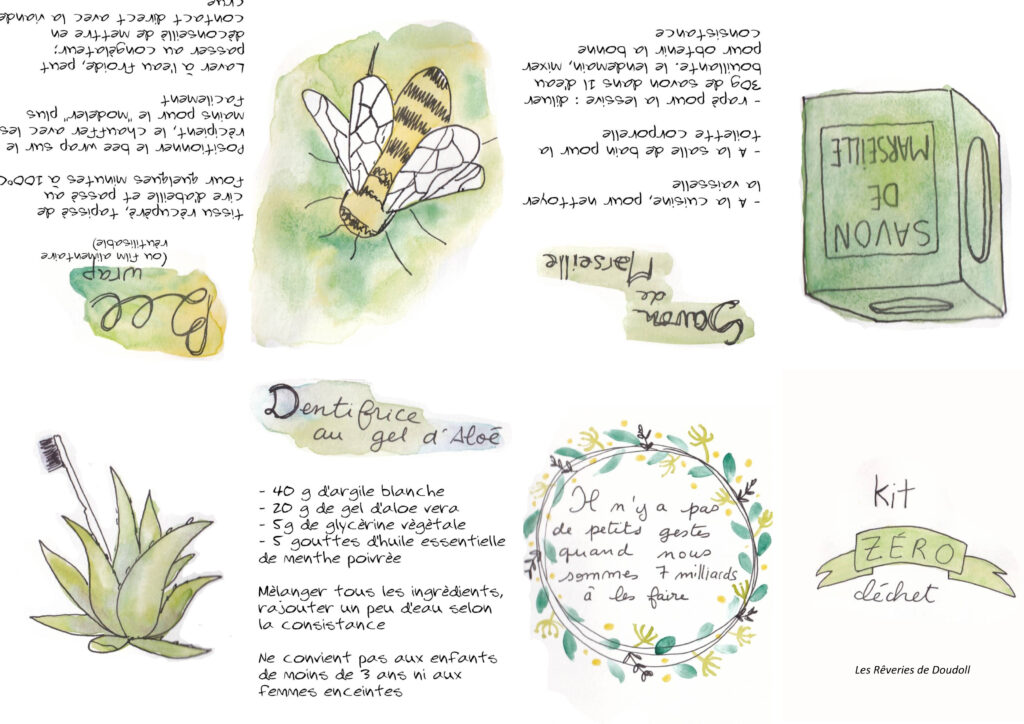 Bee
wrap
(ou film alimentaire
réutilisable)
tissu récupéré, tapissé de
cire d'abeille et passé au
Four quelques minutes à 100°C
Positionner le bee wrap sur le
récipient, le chauffer avec les
mains pour le "modeler" plus
facilement
Laver à l'eau froide, peut
passer au congélateur;
déconseillé de mettre en
contact direct avec la viande
crue
Savon
de
Marseille
- A la cuisine, pour nettoyer
la vaisselle
- A la salle de bain pour la
toilette corporelle
- rapé pour la lessive : diluer
30g de savon dans 1l d'eau
bouillante. le lendemain, mixer
pour obtenir la bonne
consistance
SAVON
DE
MARSEILLE
Dentifrice
au gel d'Aloé
- 40 g d'argile blanche
- 20 g de gel d'aloe vera
- 5g de glycérine végétale
- 5 gouttes d'huile essentielle
de menthe poivrée
Mélanger tous les ingrédients,
rajouter un peu d'eau selon
la consistance
Ne convient pas aux enfants
de moins de 3 ans ni aux
femmes enceintes
Il n'y a pas
de petits gestes
quand nous
sommes 7 milliards
à les faire
kit
ZÉRO
déchet
Les Rêveries de Doudoll